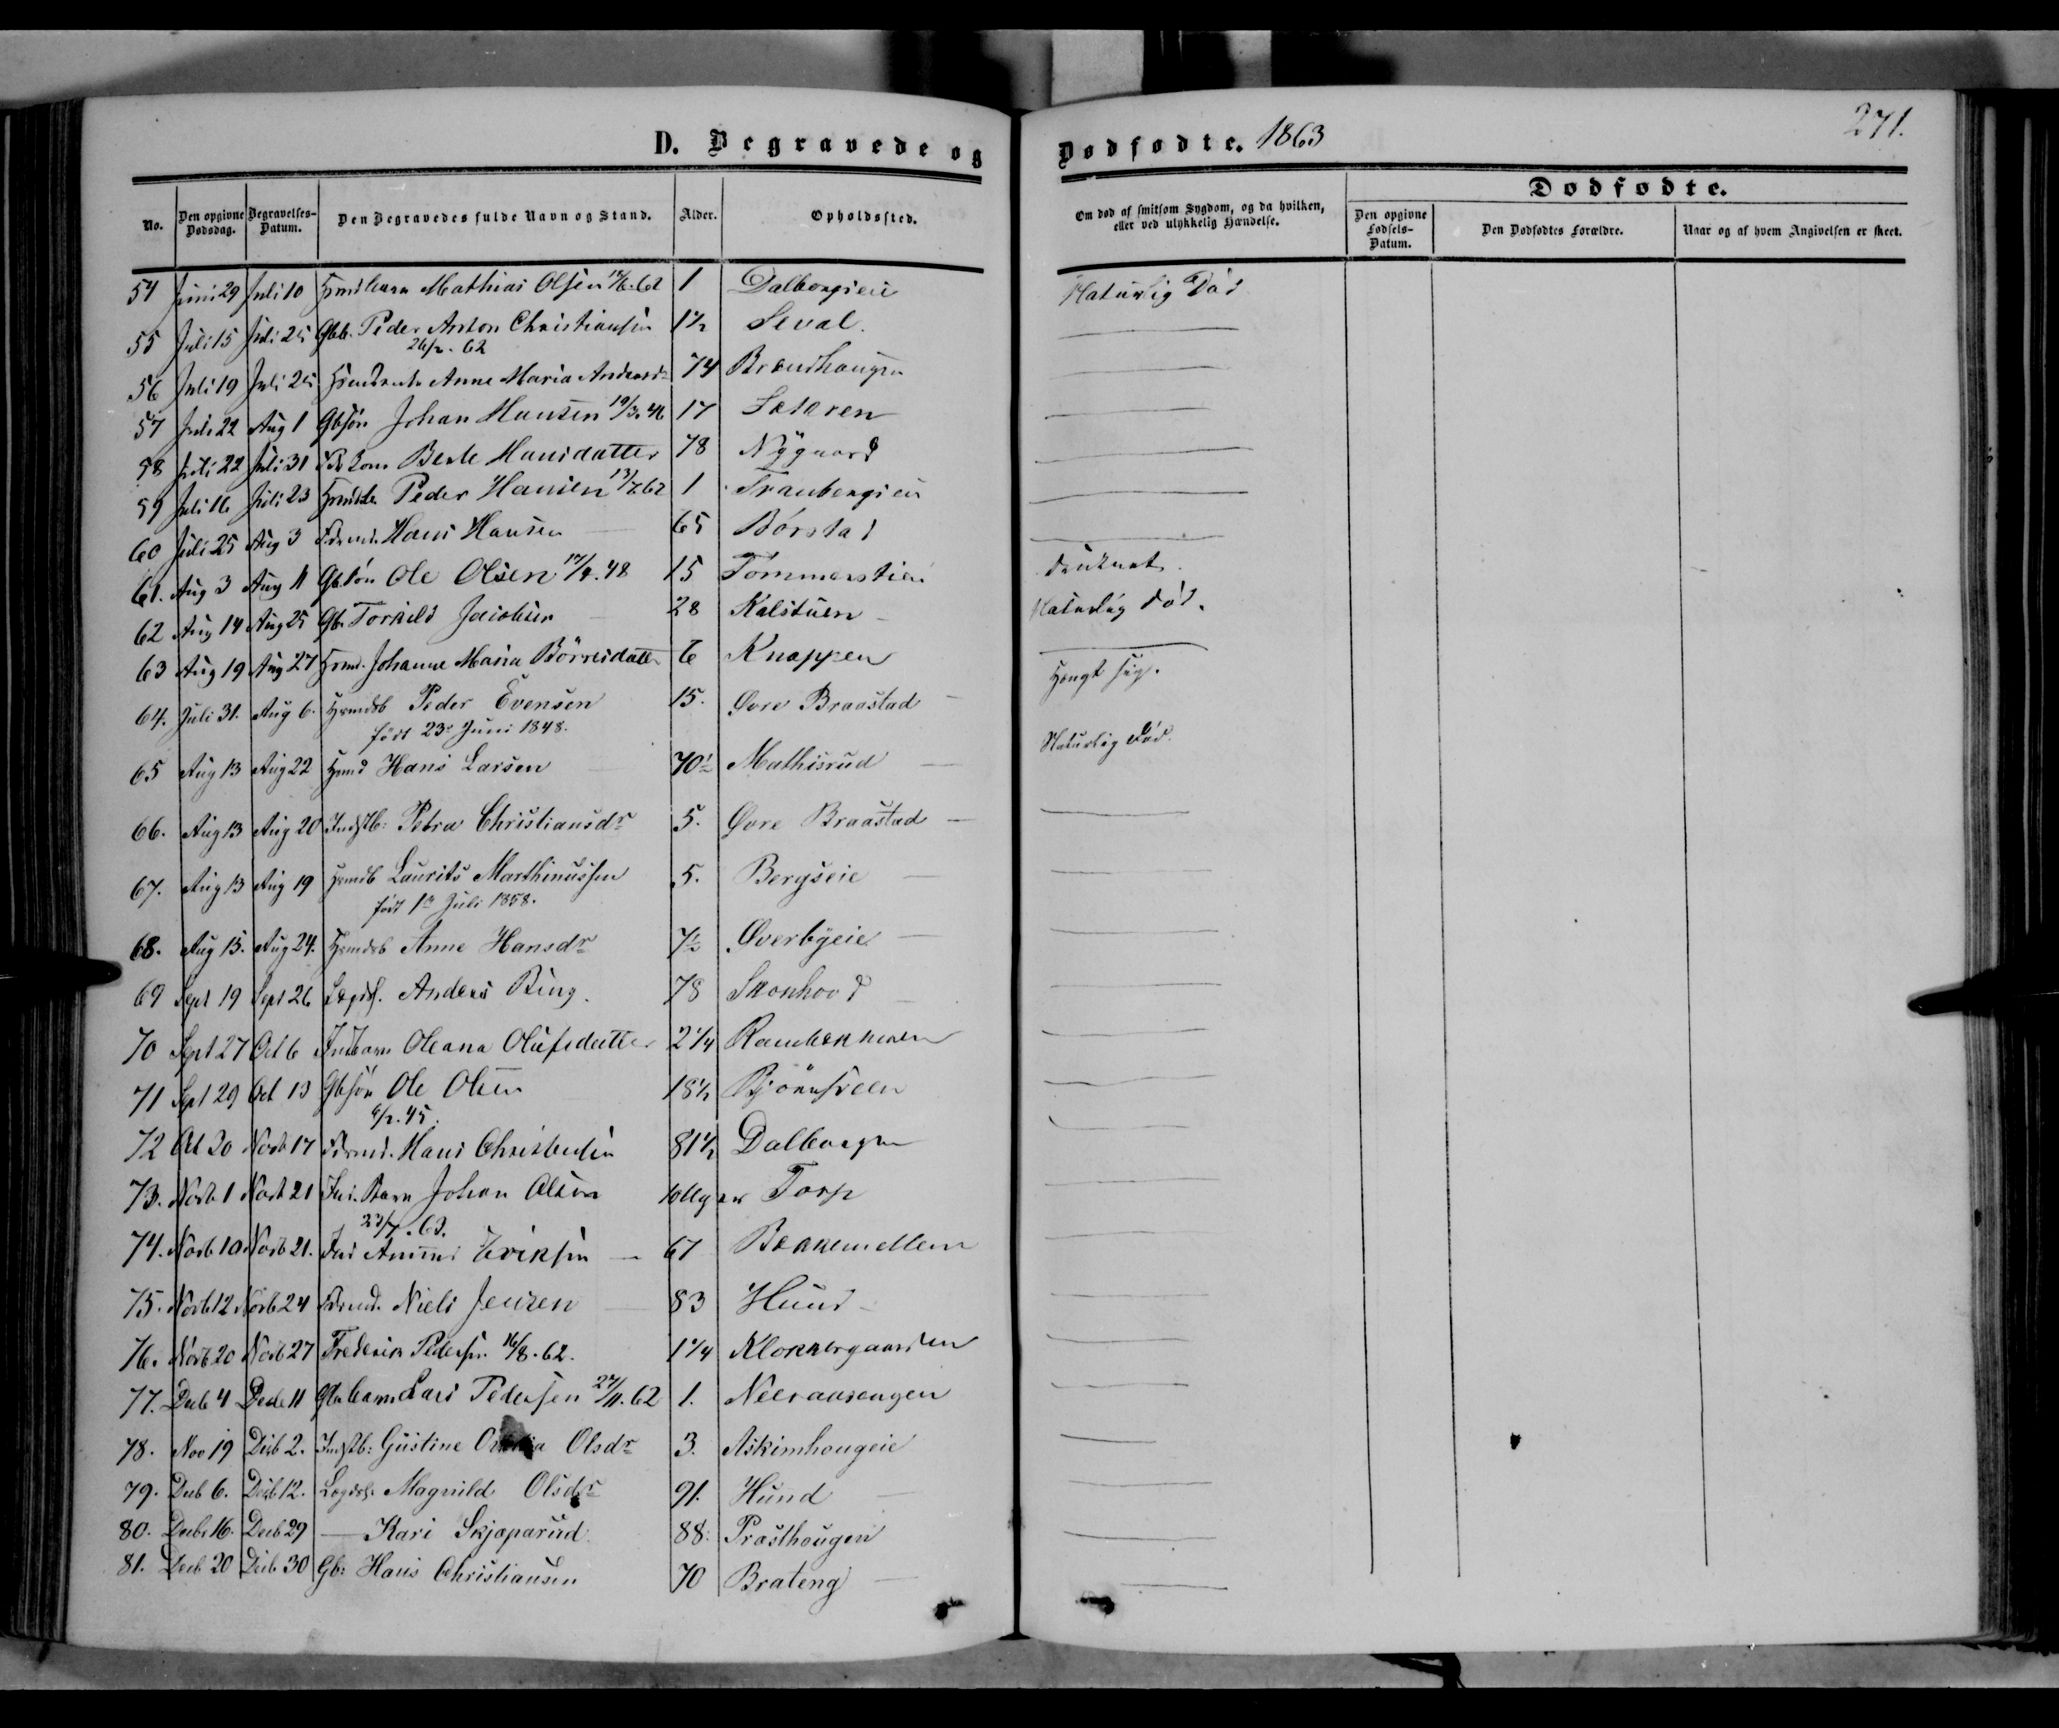 D. Begravede og Dødfødte. 1863
271.
Dødfødte.
No. Den opgivne Dødsdag. Begravelses-Datum. Den Begravedes fulde Navn og Stand. Alder. Opholdssted. Om død af smitsom Sygdom, og da hvilken, eller ved ulykkelig Hændelse. Den opgivne Fødsels-Datum. Den Dødfødtes Forældre. Naar og af hvem Angivelsen er skeet.
54 Juni 29 Juli 10 Mathias Olsen 62 1 Dalborgseie Naturlig Død
55 Juli 15 Juli 25 Gbb. Peder Anton Christiansen 1½ Seval.
26/2. 62
56 Juli 19 Juli 25 Anne Maria Andersd 74 Brændhaugen
57 Juli 22 Aug 1 Gbsøn Johan Hansen 19/3. 46 17 Sætren
58 Juli 22 Juli 31 Berte Hansdatter 78 Nygaard
59 Juli 16 Juli 23 Peder Hansen 13/7 62 1 Traubergseie
60 Juli 25 Aug 3 Hans Hansen 65 Børstad
61. Aug 3 Aug 11 Gbsøn Ole Olsen 48 15 Tømmerstien druknet.
62 Aug 14 Aug 25 Gb. Torkild Jacobsen 28 Kalstuen Naturlig død.
63 Aug 19 Aug 27 Johanne Maria Börresdatter 6 Knappen
64. Juli 31. Aug 6. Hsmdsb Peder Evensen 15. Øvre Braastad Hængt sig.
født 23de Juni 1848.
65 Aug 13 Aug 22 Hsmd Hans Larsen 70½ Mathisrud Naturlig Død.
66. Aug 13 Aug 20 Indstb: Petra Christiansdr 5. Øvre Braastad
67. Aug 13 Aug 19 Hsmdsb Laurits Marthinussen 5. Bergseie
født 1ste Juli 1858.
68. Aug 15. Aug 24. Hsmdsb Anne Hansdr 7½ Øverbyeie
69 Sept 19 Sept 26 Lægdsl. Anders Ring. 78 Skonhovd
70 Sept 27 Oct 6 Oleana Olufsdatter 2¼ Rambekkmoen
71 Sept 29 Oct 13 Gbsøn Ole Olsen 18½ Bjørnsveen
6/2. 45.
72 Oct 30 Novb 17 Hans Christensen 81½ Dalborgen
73. Novb. 1 Novb 21 Ind. Barn Johan Olsen 10 Uger Torp
23/7. 63.
74. Novb 10 Novb 21. Ind Eriksen 67 Bækkemellem
75. Novb 12 Novb 24 Niels Jensen 83 Hund
76. Novb 20 Novb 27 Frederik Pedersen. 16/8. 62. 1¼ Klokkergaarden
77. Decb 4 Decb 11 Gbbarn Lars Pedersen 27/11. 62 1. Neeraasengen
78. Nov 19 Decb 2. Indstb: Gustine Olsdr 3. Askimhougeie
79. Decb 6. Decb 12. Lægdsl. Magnild Olsdr 91. Hund
80. Decb. 16. Decb 29 — Kari Skjøparud 88. Prosthougen
81. Decb 20 Decb 30 Gb: Hans Christiansen 70 Brateng